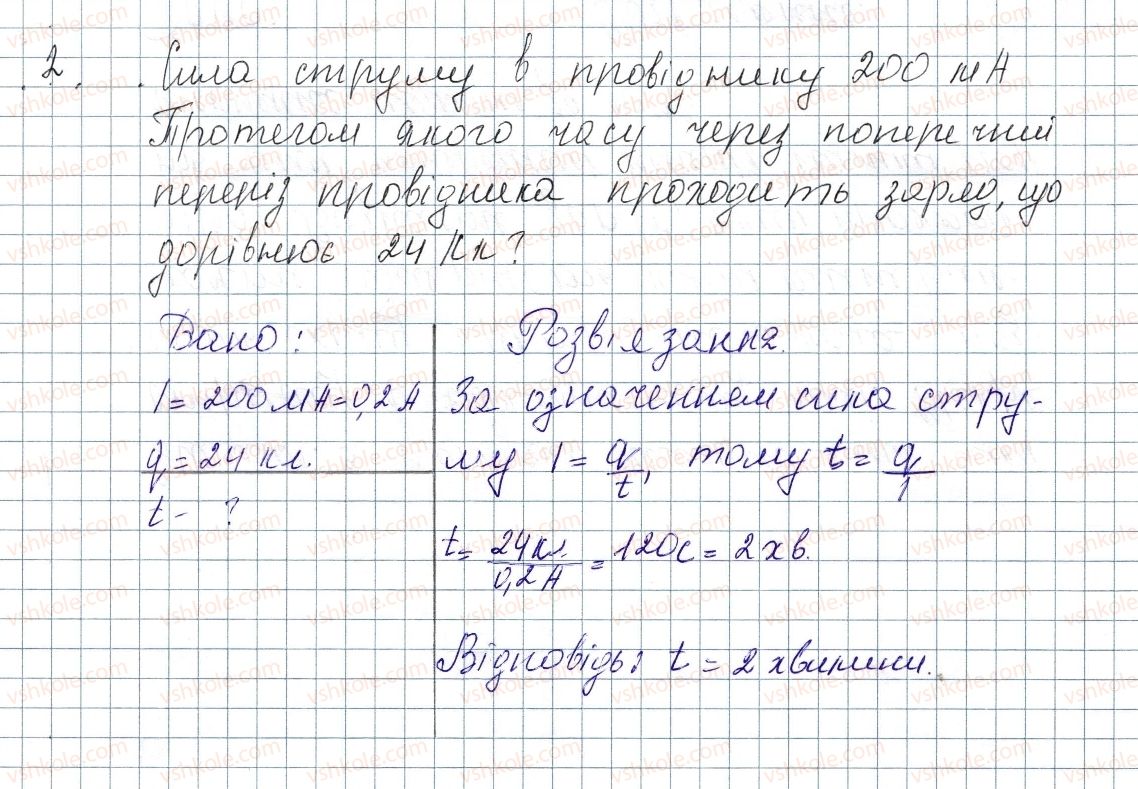 2. Сила струму в провіднику 200 мА
Протягом якого часу через поперечний
переріз провідника проходить заряд, що
дорівнює 24 Кл?
Дано:
I = 200 мА = 0,2 А
q = 24 кл.
t - ?
Розвіязання.
За означенням сила стру-
му I = q/t, тому t = q/I
t = 24 кл/0,2 А = 120с = 2 хв.
Відповідь: t = 2 хвилини.
vshkole.com